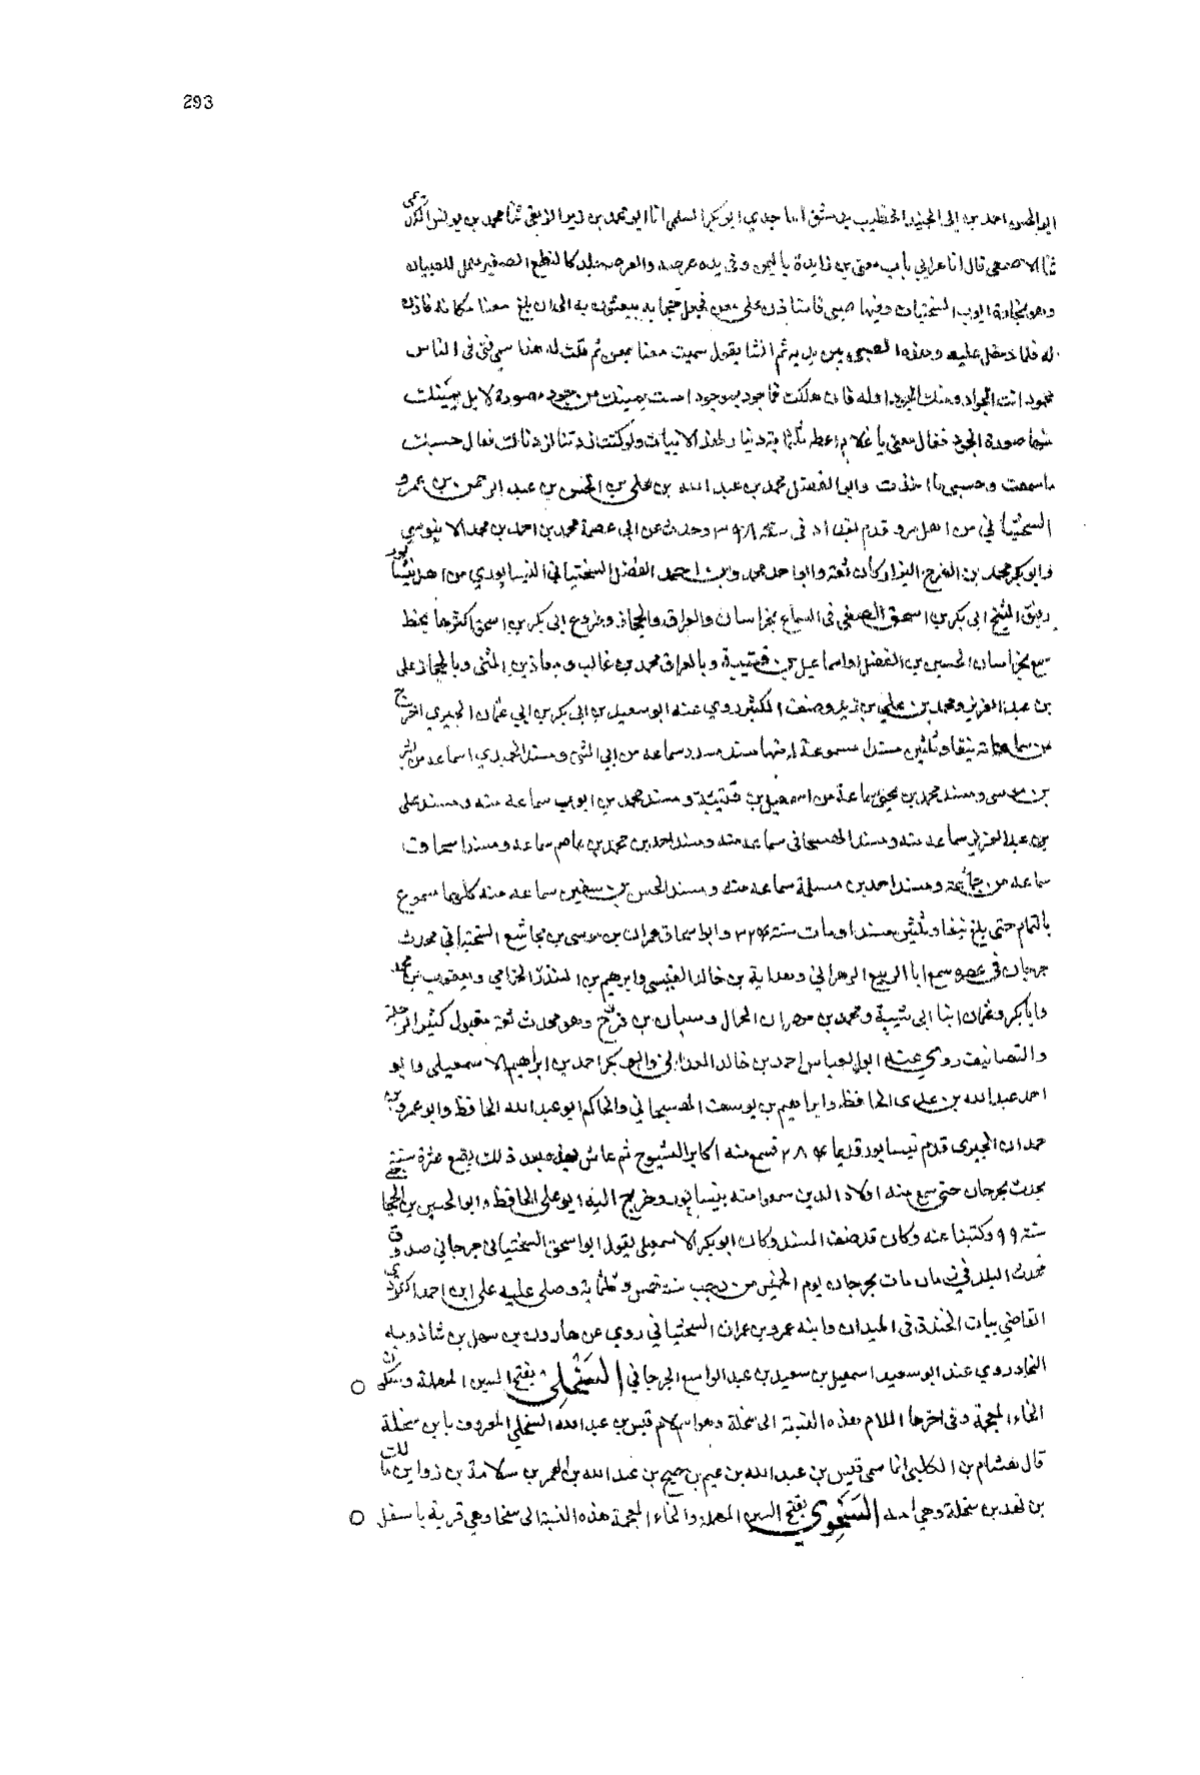 293
ابو الحسن احمد بن ابى الحديد الخطيب بدمشق انا جدي ابو بكر السلمى انا ابو محمد بن زبر الربعى ثنا محمد بن يونس الكديمى
ثنا الاصمعى قال اتا عرابي باب معن بن زايدة باليمن وفى يده عرصه والعرصه جلد كالنطع الصغير يعمل للصبيان
وهو بخادمة ايوب السختيان وفيها صبى فاستاذن على معن فجعل حجابه يبعثون به الى ان بلغ معنا مكانه فاذن
له فلما دخل عليه وهذه الصبى بين يديه ثم انشا يقول سميت معنا بمعن ثم قلت له هذا سمى فتى فى الناس
محمود انت الجواد ومنك الجود اوله فان هلكت فما جود بموجود امست يمينك من جود مصورة لا بل يمينك
منها صورة الجود فقال معن يا غلام اعطه ثلثماية دينار لهذه الابيات ولو كنت زدتنا لزدناك فقال حسبك
ما سمعت وحسبى ما اخذت وابو الفضل محمد بن عبد الله بن على بن الحسن بن عبد الرحمن بن عمرو
السختياني من اهل مرو قدم بغداد فى سنة ٣٩٨ وحدث عن ابى عصمة محمد بن احمد بن محمد
وابو بكر محمد بن الفرج البزار كان ثقة وابو احمد محمد بن احمد الفضل السختياني النيسابوري من اهل نيسابور
رفيق الشيخ ابى بكر بن اسحق الصبغى فى السماع بخراسان والعراق والحجاز وفروع ابى بكر بن اسحق اكثرها بخط
سمع بخراسان الحسين بن الفضل واسماعيل بن قتيبة وبالعراق محمد بن غالب ومعاذ بن المثنى وبالحجاز على
بن عبد العزيز ومحمد بن على بن زيد وصنف الكثير روي عنه ابو سعيد بن ابى بكر بن ابي عثمان الحيري اخرج
من سماعاته نيفا وثلثين مسندا مسموعة له منها مسند مسدد سماعه من ابي المثنى ومسند الحميدي سماعه من بشر
بن موسى ومسند محمد بن يحيى سماعه من اسمعيل بن قتيبة ومسند محمد بن ايوب سماعه منه ومسند على
بن عبد العزيز سماعه منه ومسند سماعه منه ومسند احمد بن محمد بن عاصم سماعه ومسند اسحاق
سماعه من جماعة ومسند احمد بن مسلمة سماعه منه ومسند الحسن بن سفين سماعه منه كلها مسموع
بالتمام حتى بلغ نيفا وثلثين مسندا ومات سنة وابو اسحاق عمران بن موسى بن مجاشع السختياني محدث
جرجان فى عصره سمع ابا الربيع الزهراني وهدابة بن خالد القيسى وابرهيم بن المنذر الحزامي ويعقوب بن محمد
وابا بكر وعثمان ابنا ابى شيبة ومحمد بن مهران الحمال وشيبان بن فروخ وهو محدث ثقة مقبول كثير الرحلة
والتصانيف روي عنه ابو العباس احمد بن خالد وابو بكر احمد بن ابراهيم الاسمعيلى وابو
احمد عبد الله بن عدى الحافظ وابراهيم بن يوسف والحاكم ابو عبد الله الحافظ وابو عمرو بن
حمدان الحيرى قدم نيسابور قديما فسمع منه اكابر الشيوخ ثم عاش بعد ذلك بضع عشرة سنة
يحدث بجرجان حتى سمع منه اولاد الذين سمعوا منه بنيسابور وخرج اليه ابو على الحافظ وابو الحسين بن الحجاجى
سنة ٩٩ وكتبنا عنه وكان قد صنف المسند وكان ابو بكر الاسمعيلى يقول ابو اسحق السختيانى جرجاني صدوق
محدث البلد فى زمانه مات بجرجان يوم الخميس من رجب سنة خمس وثلثماية وصلى عليه على ابن احمد
القاضى بباب الخندق فى الميدان وابنه عمرو بن عمران السختياني روي عن هارون بن سهل بن شاذويه
النجاد روي عنه ابو سعيد اسمعيل بن سعيد بن عبد الواسع الجرجاني السَّخْلِى بفتح السين المهملة وسكون
الخاء المعجمة وفى اخرها اللام هذه النسبة الى سخلة وهو اسلم قيس بن عبد الله السخلى المعروف بابن سخلة
قال هشام بن الكلبى انا سمى قيس بن عبد الله بن غنم بن صبح بن عبد الله بن العمر بن سلامة بن زوا بن مالك
بن نهد بن سخلة وهي امه السَّخَوِي بفتح السين المهملة والخاء المعجمة هذه النسبة الى سخا وهي قرية باسفل